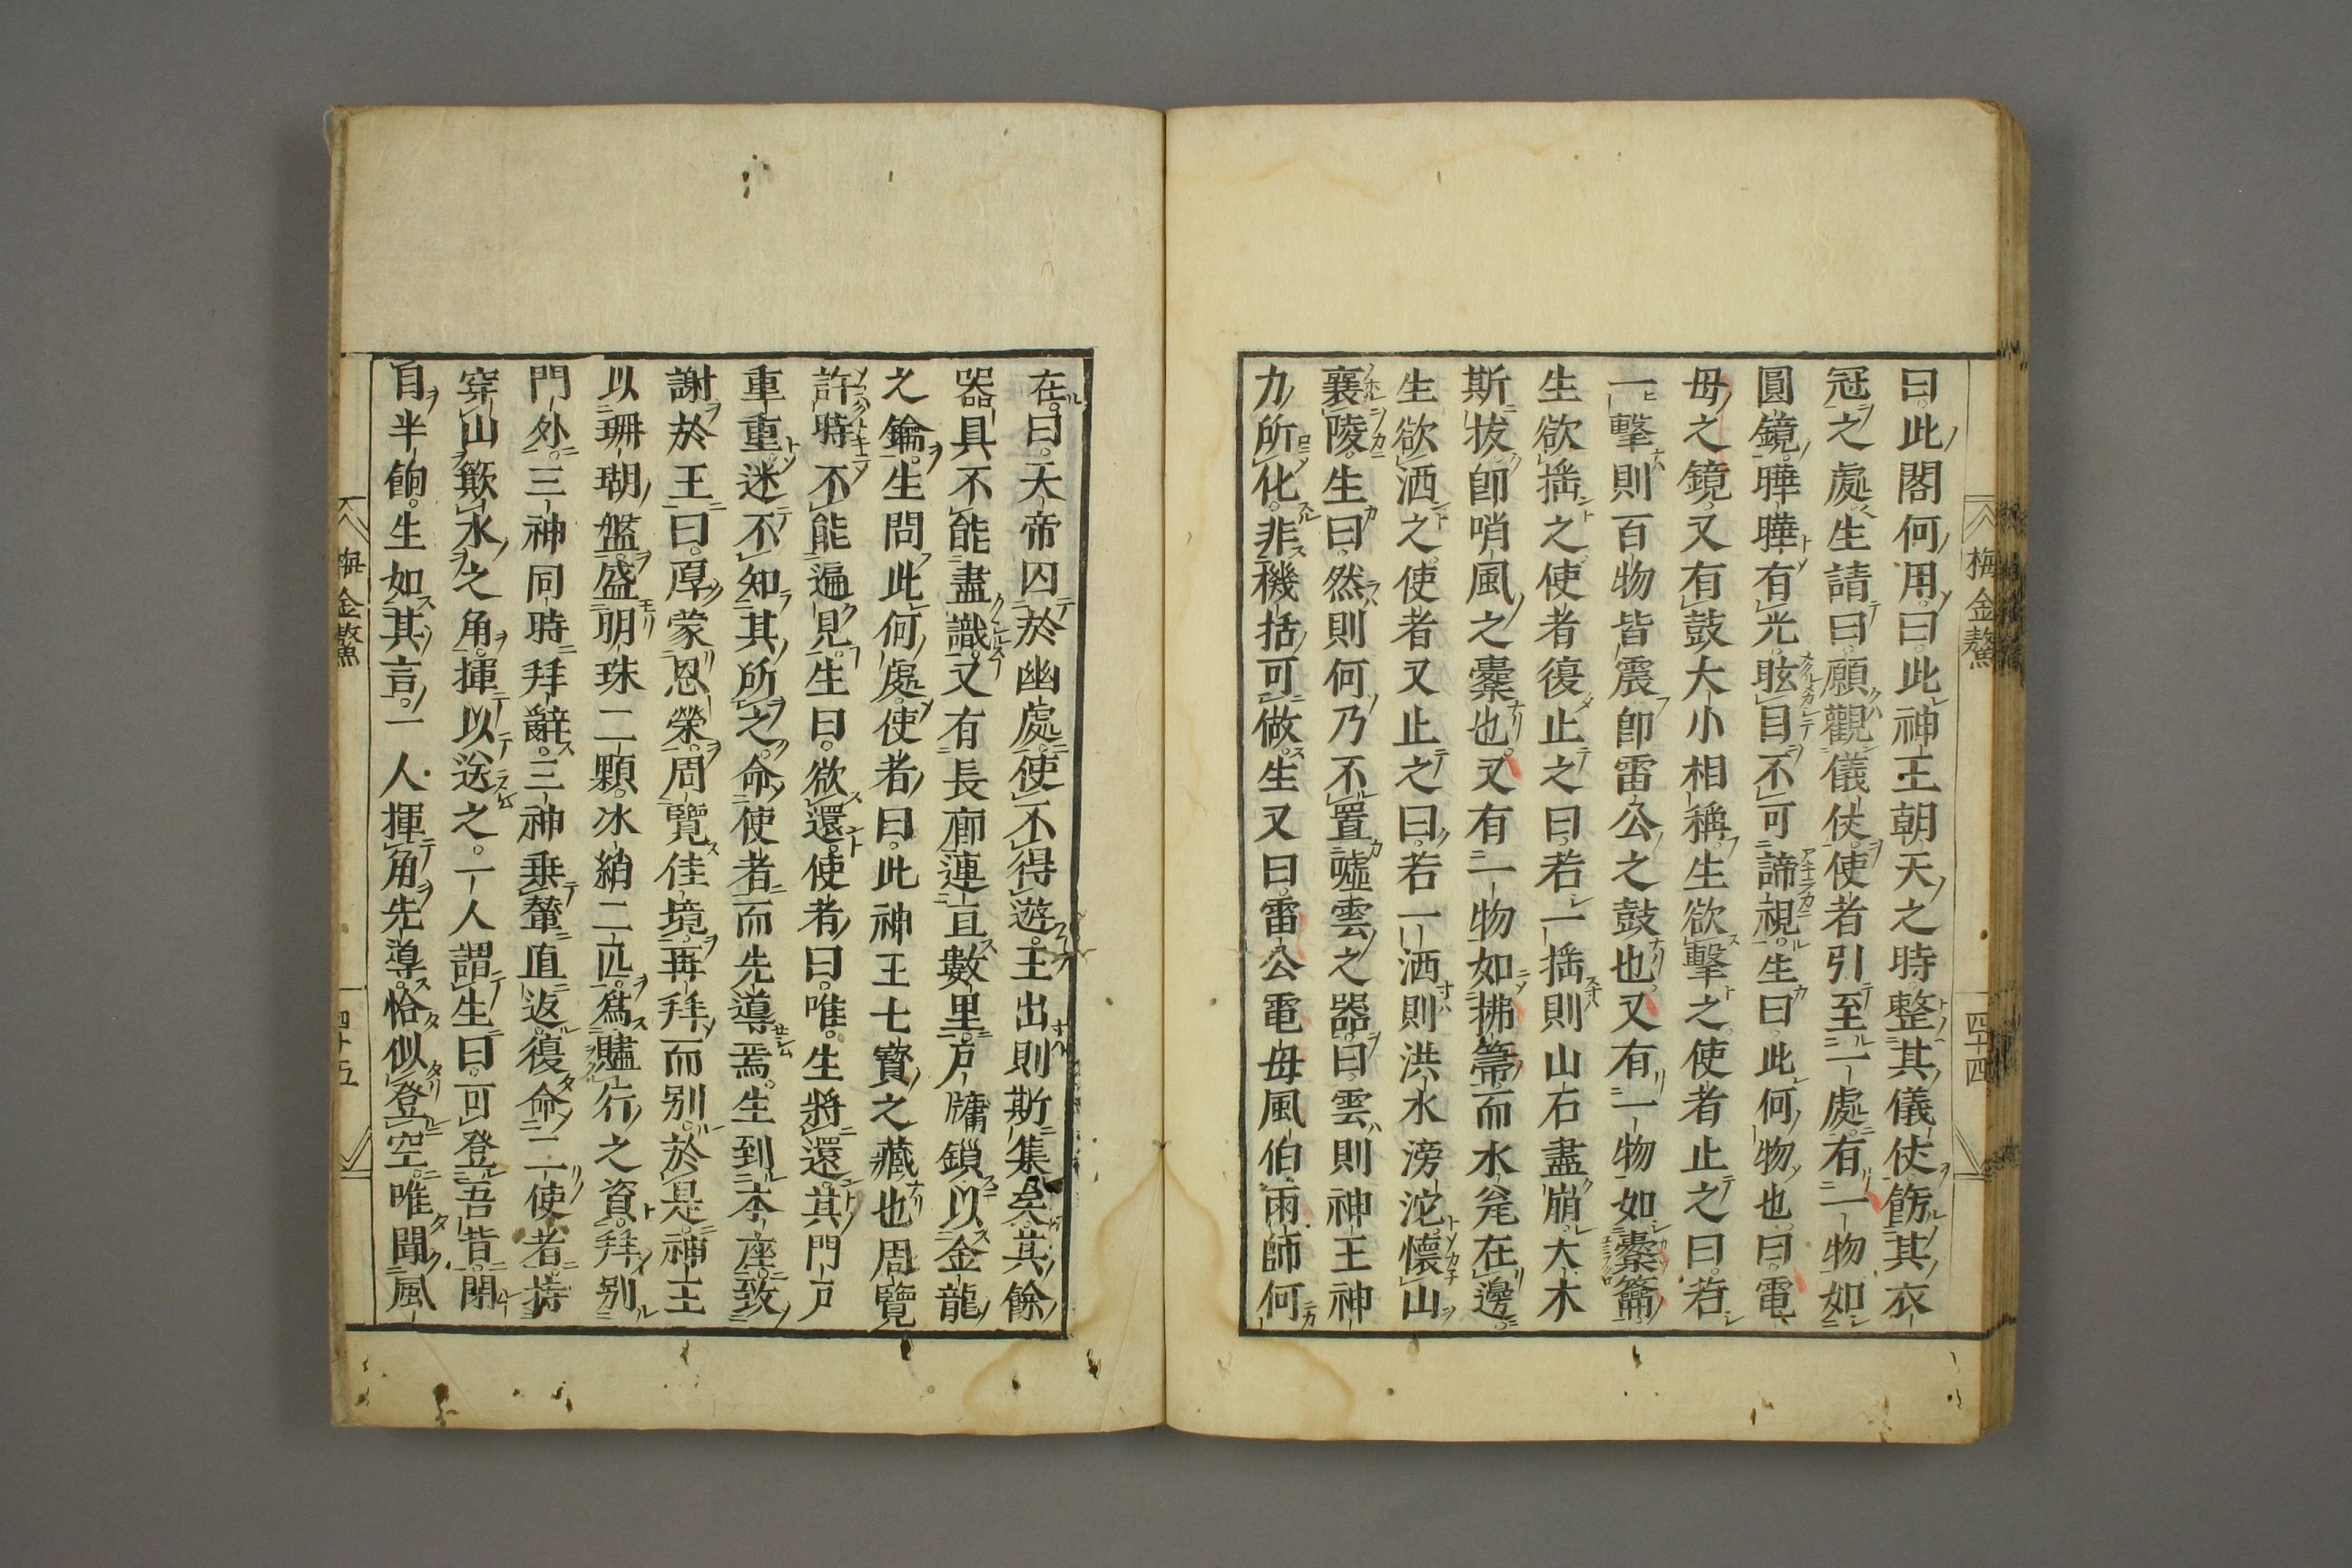 曰此閣何用曰此神王朝天之時整其儀仗餙其衣
冠之處生請曰願觀儀仗使者引至一處有一物如
圓鏡曄曄有光眩目不可諦視生曰此何物也曰電
母之鏡又有鼓大小相稱生欲擊之使者止之曰若
一擊則百物皆震卽雷公之鼓也又有一物如橐籥
生欲搖之使者復止之曰若一搖則山石盡崩大木
斯拔卽哨風之橐也又有一物如拂箒而水瓮在邊
生欲洒之使者又止之曰若一洒則洪水滂沱懷山
襄陵生曰然則何乃不置噓雲之器曰雲則神王神
力所化非機括可做生又曰雷公電母風伯雨師何
梅金鰲
四十四
在曰天帝囚於幽處使不得遊王出則斯集矣其餘
器具不能盡識又有長廊連亘數里戶牖鎖以金龍
之鑰生問此何處使者曰此神王七寳之藏也周覽
許時不能遍見生曰欲還使者曰唯生將還其門戶
重重迷不知其所之命使者而先導焉生到本座致
謝於王曰厚蒙恩榮周覽佳境再拜而别於是神王
以珊瑚盤盛明珠二顆冰綃二匹爲贐行之資拜别
門外三神同時拜辭三神乗輦直返復命二使者持
穿山簸水之角揮以送之一人謂生曰可登吾背閉
目半餉生如其言一人揮角先導恰似登空唯聞風
梅金鰲
四十五